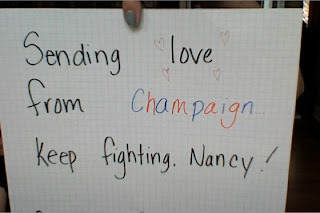 Sending love
from Champaign...
keep fighting. Nancy!